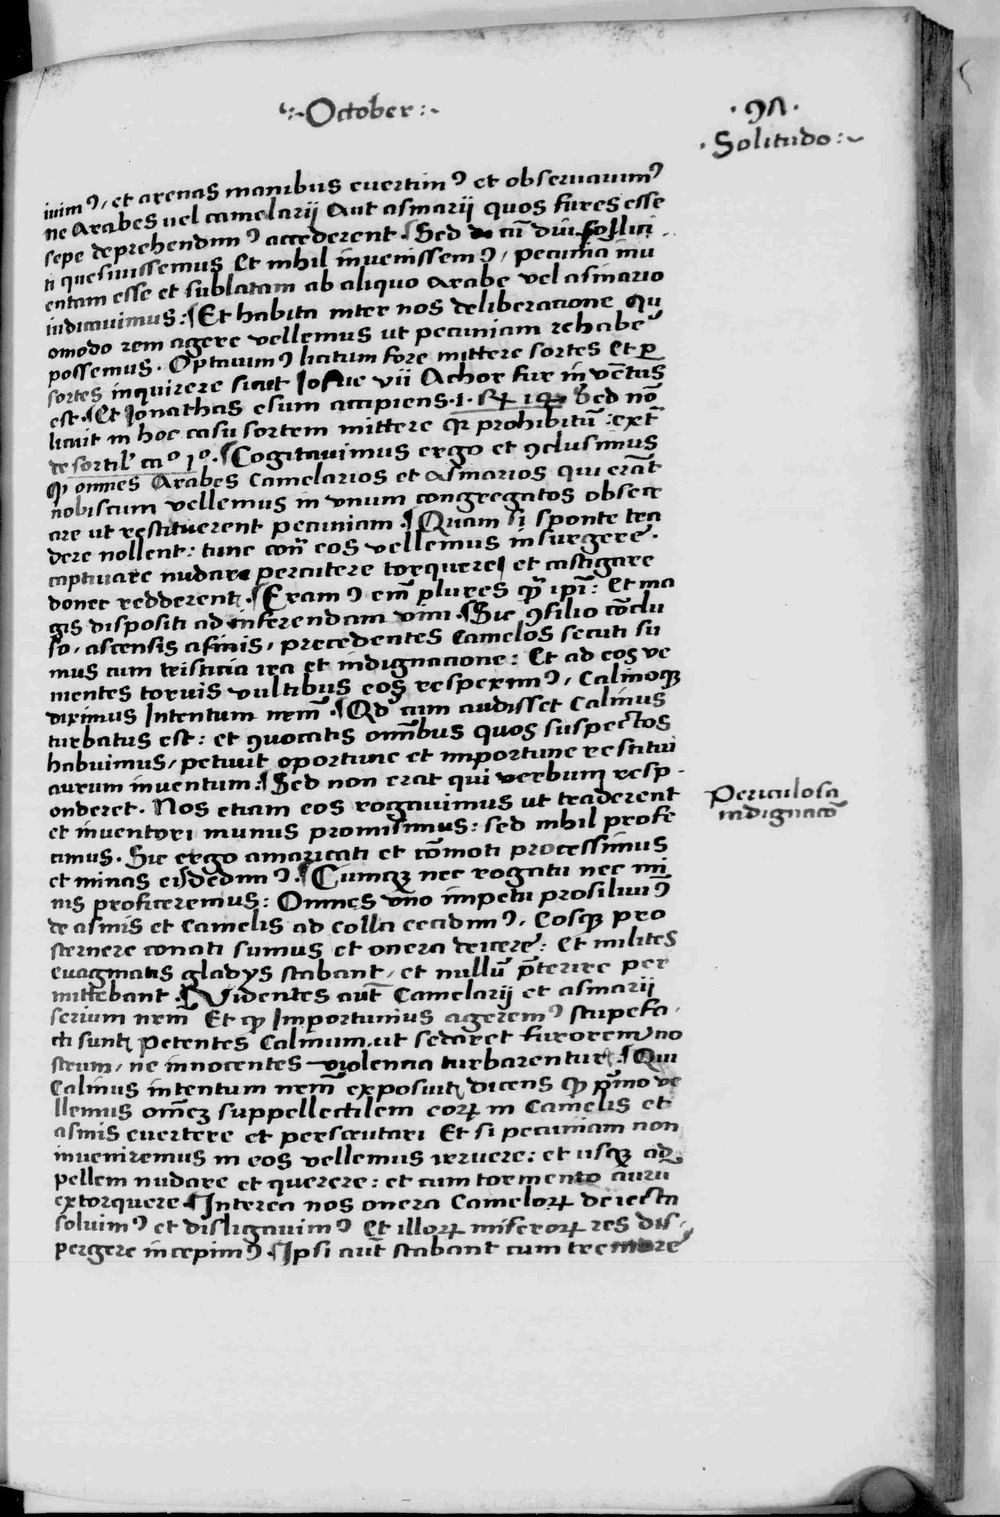 October
.97.
Solitudo
iuimꝰ, et arenas manibus euertimꝰ et obseruauimꝰ
ne Arabes uel camelarij Aut asinarij quos fures esse
sepe deprehendimꝰ accederent. ¶Sed cū diu sollici
ti quesiuissemus Et nihil inuenissemꝰ, pecuniā inu
entam esse et sublatam ab aliquo Arabe vel asinario
iudicauimus: ¶Et habita inter nos deliberacione qu
omodo rem agere vellemus ut pecuniam rehabe
possemus. Optauimꝰ licitum fore mittere sortes Et ꝑ
sortes inquirere sicut Iosue vii Achor fur inuentus
est. ¶Et Ionathas esum accipiens .1. 14 Sed nō
licuit in hoc casu sortem mittere qꝛ prohibitū: ext̄
de sortil' caº 1º. ¶Cogitauimus ergo et ꝯclusimus
ꝙ omnes Arabes Camelarios et Asinarios qui erāt
nobiscum vellemus in vnum congregatos obsecr
are ut restituerent pecuniam. ¶Quam si sponte tra
dere nollent: tunc con̄ eos vellemus insurgere.
captiuare nudare percutere torquere et castigare
donec redderent. ¶Eramꝰ em̄ plures qᷓ ip̄i: Et ma
gis dispositi ad inferendam vim. ¶Sic ꝯsilio cōclu
so, ascensis asinis, precedentes Camelos secuti su
mus cum tristicia ira et indignacione: Et ad eos ve
nientes toruis vultibus eos respeximꝰ, Calinoqꝫ
diximus Intentum nrm̄. ¶Qd cum audisset Calinus
turbatus est: et ꝯuocatis om̄bus quos suspectos
habuimus, petiuit oportune et importune restitui
aurum inuentum: ¶Sed non erat qui verbum resp
onderet. Nos etiam eos rogauimus ut traderent
et inuentori munus promisimus: sed nihil profe
cimus. Sic ergo amaricati et cōmoti processimus
et minas eisdedimꝰ. ¶Cumqꝫ nec rogatu nec mi
nis proficeremus: Omnes vno impetu prosiluimꝰ
de asinis et Camelis ad colla cecidimꝰ, Eosqꝫ pro
sternere conati sumus et onera deicere: Et milites
euaginatis gladijs stabant, et nullū p̄terire per
mittebant. ¶Videntes aut̄ Camelarij et asinarij
serium nrm̄ Et ꝙ Importunius ageremꝰ stupefa
cti sunt, Petentes Calinum ut sedaret furorem no
strum, ne innocentes violencia turbarentur. ¶Qui
Calinus intentum nrm̄ exposuit, dicens ꝙ p̄mo ve
llemus om̄eꝫ suppellectilem eoꝝ in Camelis et
asinis euertere et perscrutari Et si pecuniam non
inueniremus in eos vellemus irruere: et usqꝫ ad
pellem nudare et querere: et cum tormento aurū
extorquere ¶Interea nos onera Cameloꝝ deiecta
soluimꝰ et disligauimꝰ Et illoꝝ miseroꝝ res dis
pergere incepimꝰ. ¶Ipsi aut̄ stabant cum tremore
Periculosa
indignacō